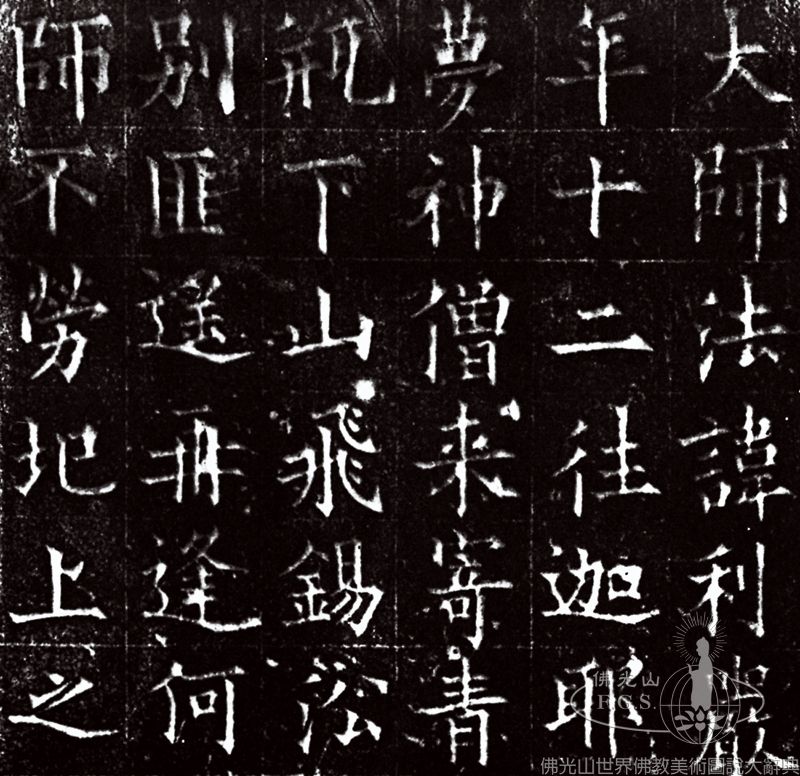 大師法諱利嚴
年十二往迦耶
夢神僧来寄青
瓶下山飛錫㳂
別匪遥再逢何
師不勞圯上之
佛光山
F.G.S.
佛光山世界佛教美術圖說大辭典